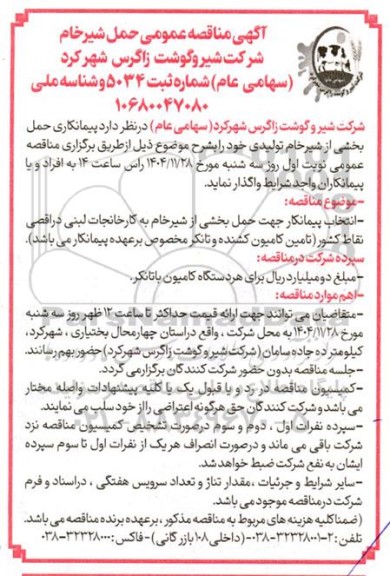 آگهی مناقصه عمومی حمل شیرخام
شرکت شیر و گوشت زاگرس شهرکرد
(سهامی عام) شماره ثبت ۵۰۳۴ و شناسه ملی
۱۰۶۸۰۰۴۷۰۸۰
شرکت شیر و گوشت زاگرس شهرکرد (سهامی عام) در نظر دارد پیمانکاری حمل
بخشی از شیرخام تولیدی خود را بشرح موضوع ذیل از طریق برگزاری مناقصه
عمومی نوبت اول روز سه شنبه مورخ ۱۴۰۴/۱۱/۲۸ راس ساعت ۱۴ به افراد و یا
پیمانکاران واجد شرایط واگذار نماید.
-موضوع مناقصه:
-انتخاب پیمانکار جهت حمل بخشی از شیرخام به کارخانجات لبنی در اقصی
نقاط کشور (تامین کامیون کشنده و تانکر مخصوص بر عهده پیمانکار می باشد).
سپرده شرکت در مناقصه:
-مبلغ دو میلیارد ریال برای هر دستگاه کامیون با تانکر.
-اهم موارد مناقصه:
-متقاضیان می توانند جهت ارائه قیمت حداکثر تا ساعت ۱۲ ظهر روز سه شنبه
مورخ ۱۴۰۴/۱۱/۲۸ به محل شرکت ، واقع در استان چهارمحال بختیاری ، شهرکرد،
کیلومتر ده جاده سامان (شرکت شیر و گوشت زاگرس شهرکرد) حضور بهم رسانند.
-جلسه مناقصه بدون حضور شرکت کنندگان برگزار می گردد.
-کمیسیون مناقصه در رد و یا قبول یک یا کلیه پیشنهادات واصله مختار
می باشد و شرکت کنندگان حق هرگونه اعتراضی را از خود سلب می نمایند.
-سپرده نفرات اول ، دوم و سوم در صورت تشخیص کمیسیون مناقصه نزد
شرکت باقی می ماند و در صورت انصراف هر یک از نفرات اول تا سوم سپرده
ایشان به نفع شرکت ضبط خواهد شد.
-سایر شرایط و جزئیات ، مقدار تناژ و تعداد سرویس هفتگی ، در اسناد و فرم
شرکت در مناقصه موجود می باشد.
(ضمنا کلیه هزینه های مربوط به مناقصه مذکور ، بر عهده برنده مناقصه می باشد.
تلفن: ۲-۰۳۸-۳۲۳۲۸۰۰۱ (داخلی ۱۰۸ بازرگانی) - فاکس: ۰۳۸-۳۲۳۲۸۰۰۰